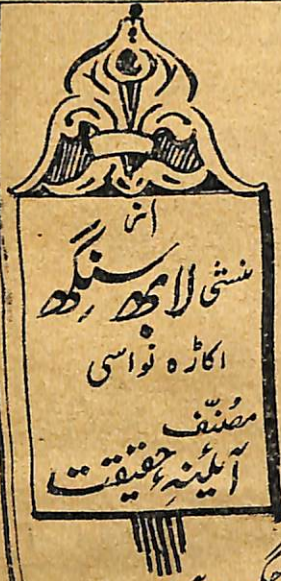 از
منشی لابھ سنگھ
اکاڑہ نواسی
مصنّف
آئینۂ حقیقت